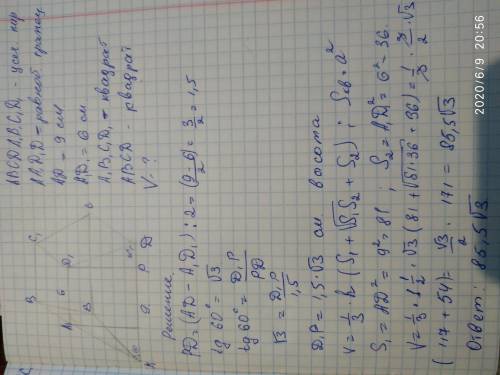 ABCDA₁B₁C₁D₁ - усеч. пир
AA₁D₁D - равноб. трапец.
AD = 9 см
A₁D₁ = 6 см
A₁B₁C₁D₁ - квадрат
ABCD - квадрат
V - ?
B₁
C₁
A₁
6
D₁
B
A
60°
9
P
D
Решение
PD = (AD - A₁D₁) : 2 = (9-6)/2 = 3/2 = 1,5
tg 60° = √3
tg 60° = D₁P/PD
√3 = D₁P/1,5
D₁P = 1,5·√3 см высота
V = 1/3 · h (S₁ + √S₁S₂ + S₂) ; Sкв = a²
S₁ = AD² = 9² = 81 ; S₂ = A₁D₁² = 6² = 36.
V = 1/3 · 1 1/2 · √3 (81 + √81·36 + 36) = 1/3 · 3/2 · √3
(117 + 54) = √3/2 · 171 = 85,5√3
Ответ: 85,5√3
2020/6/9 20:56